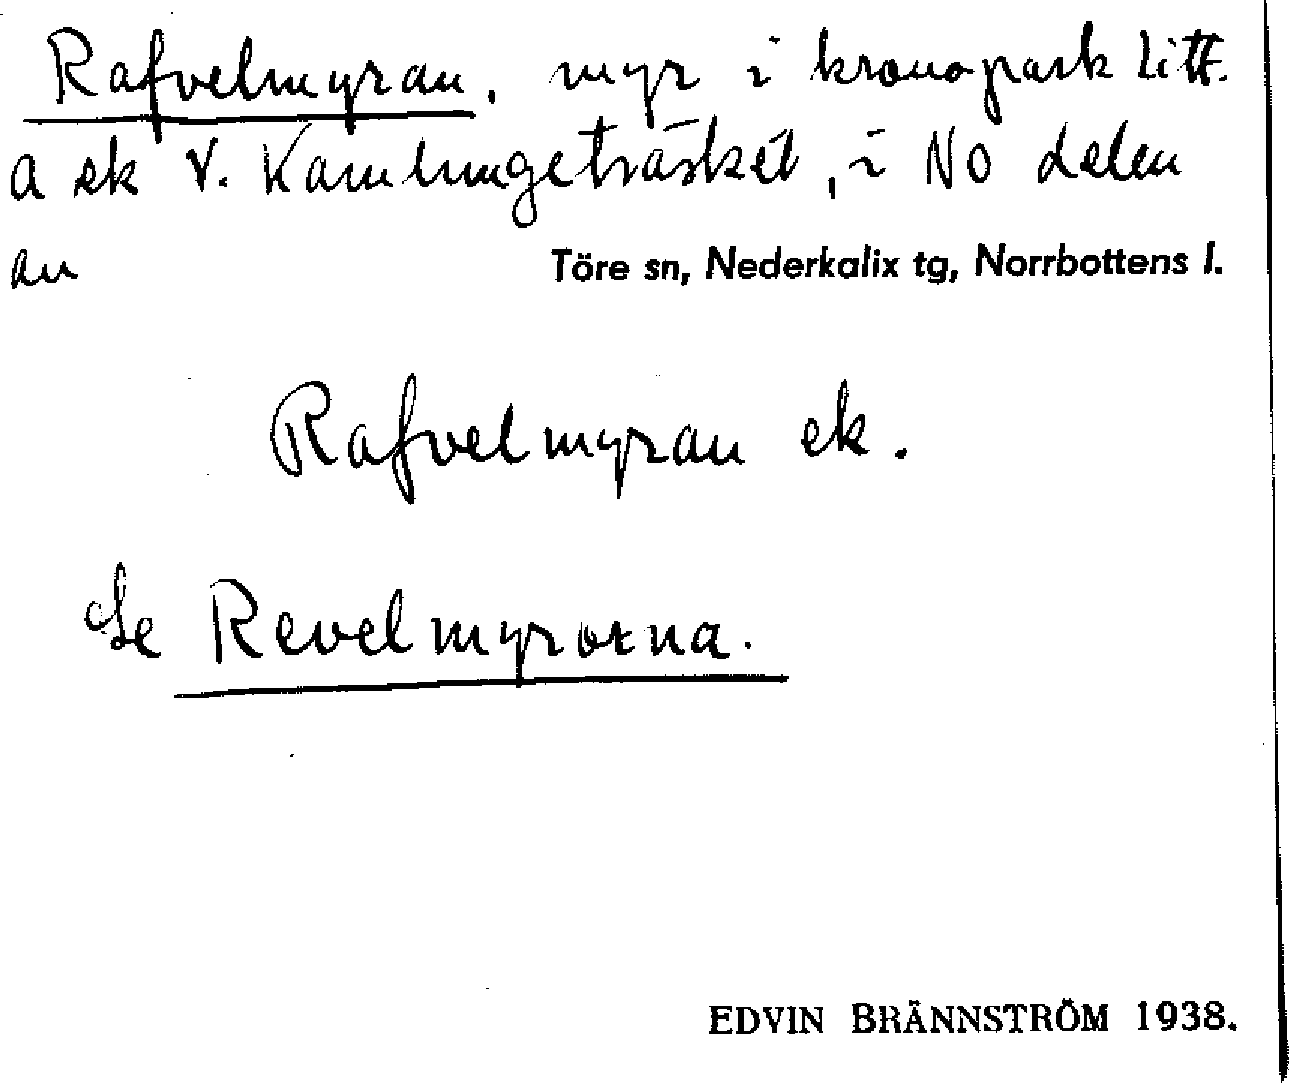 Rafvelmyran, myr i kronopark Litt.
a ek V. Kamlungeträsket, i NO delen
av
Töre sn, Nederkalix tg, Norrbottens l.
Rafvelmyran ek.
Se Revelmyrorna.
EDVIN BRÄNNSTRÖM 1938.